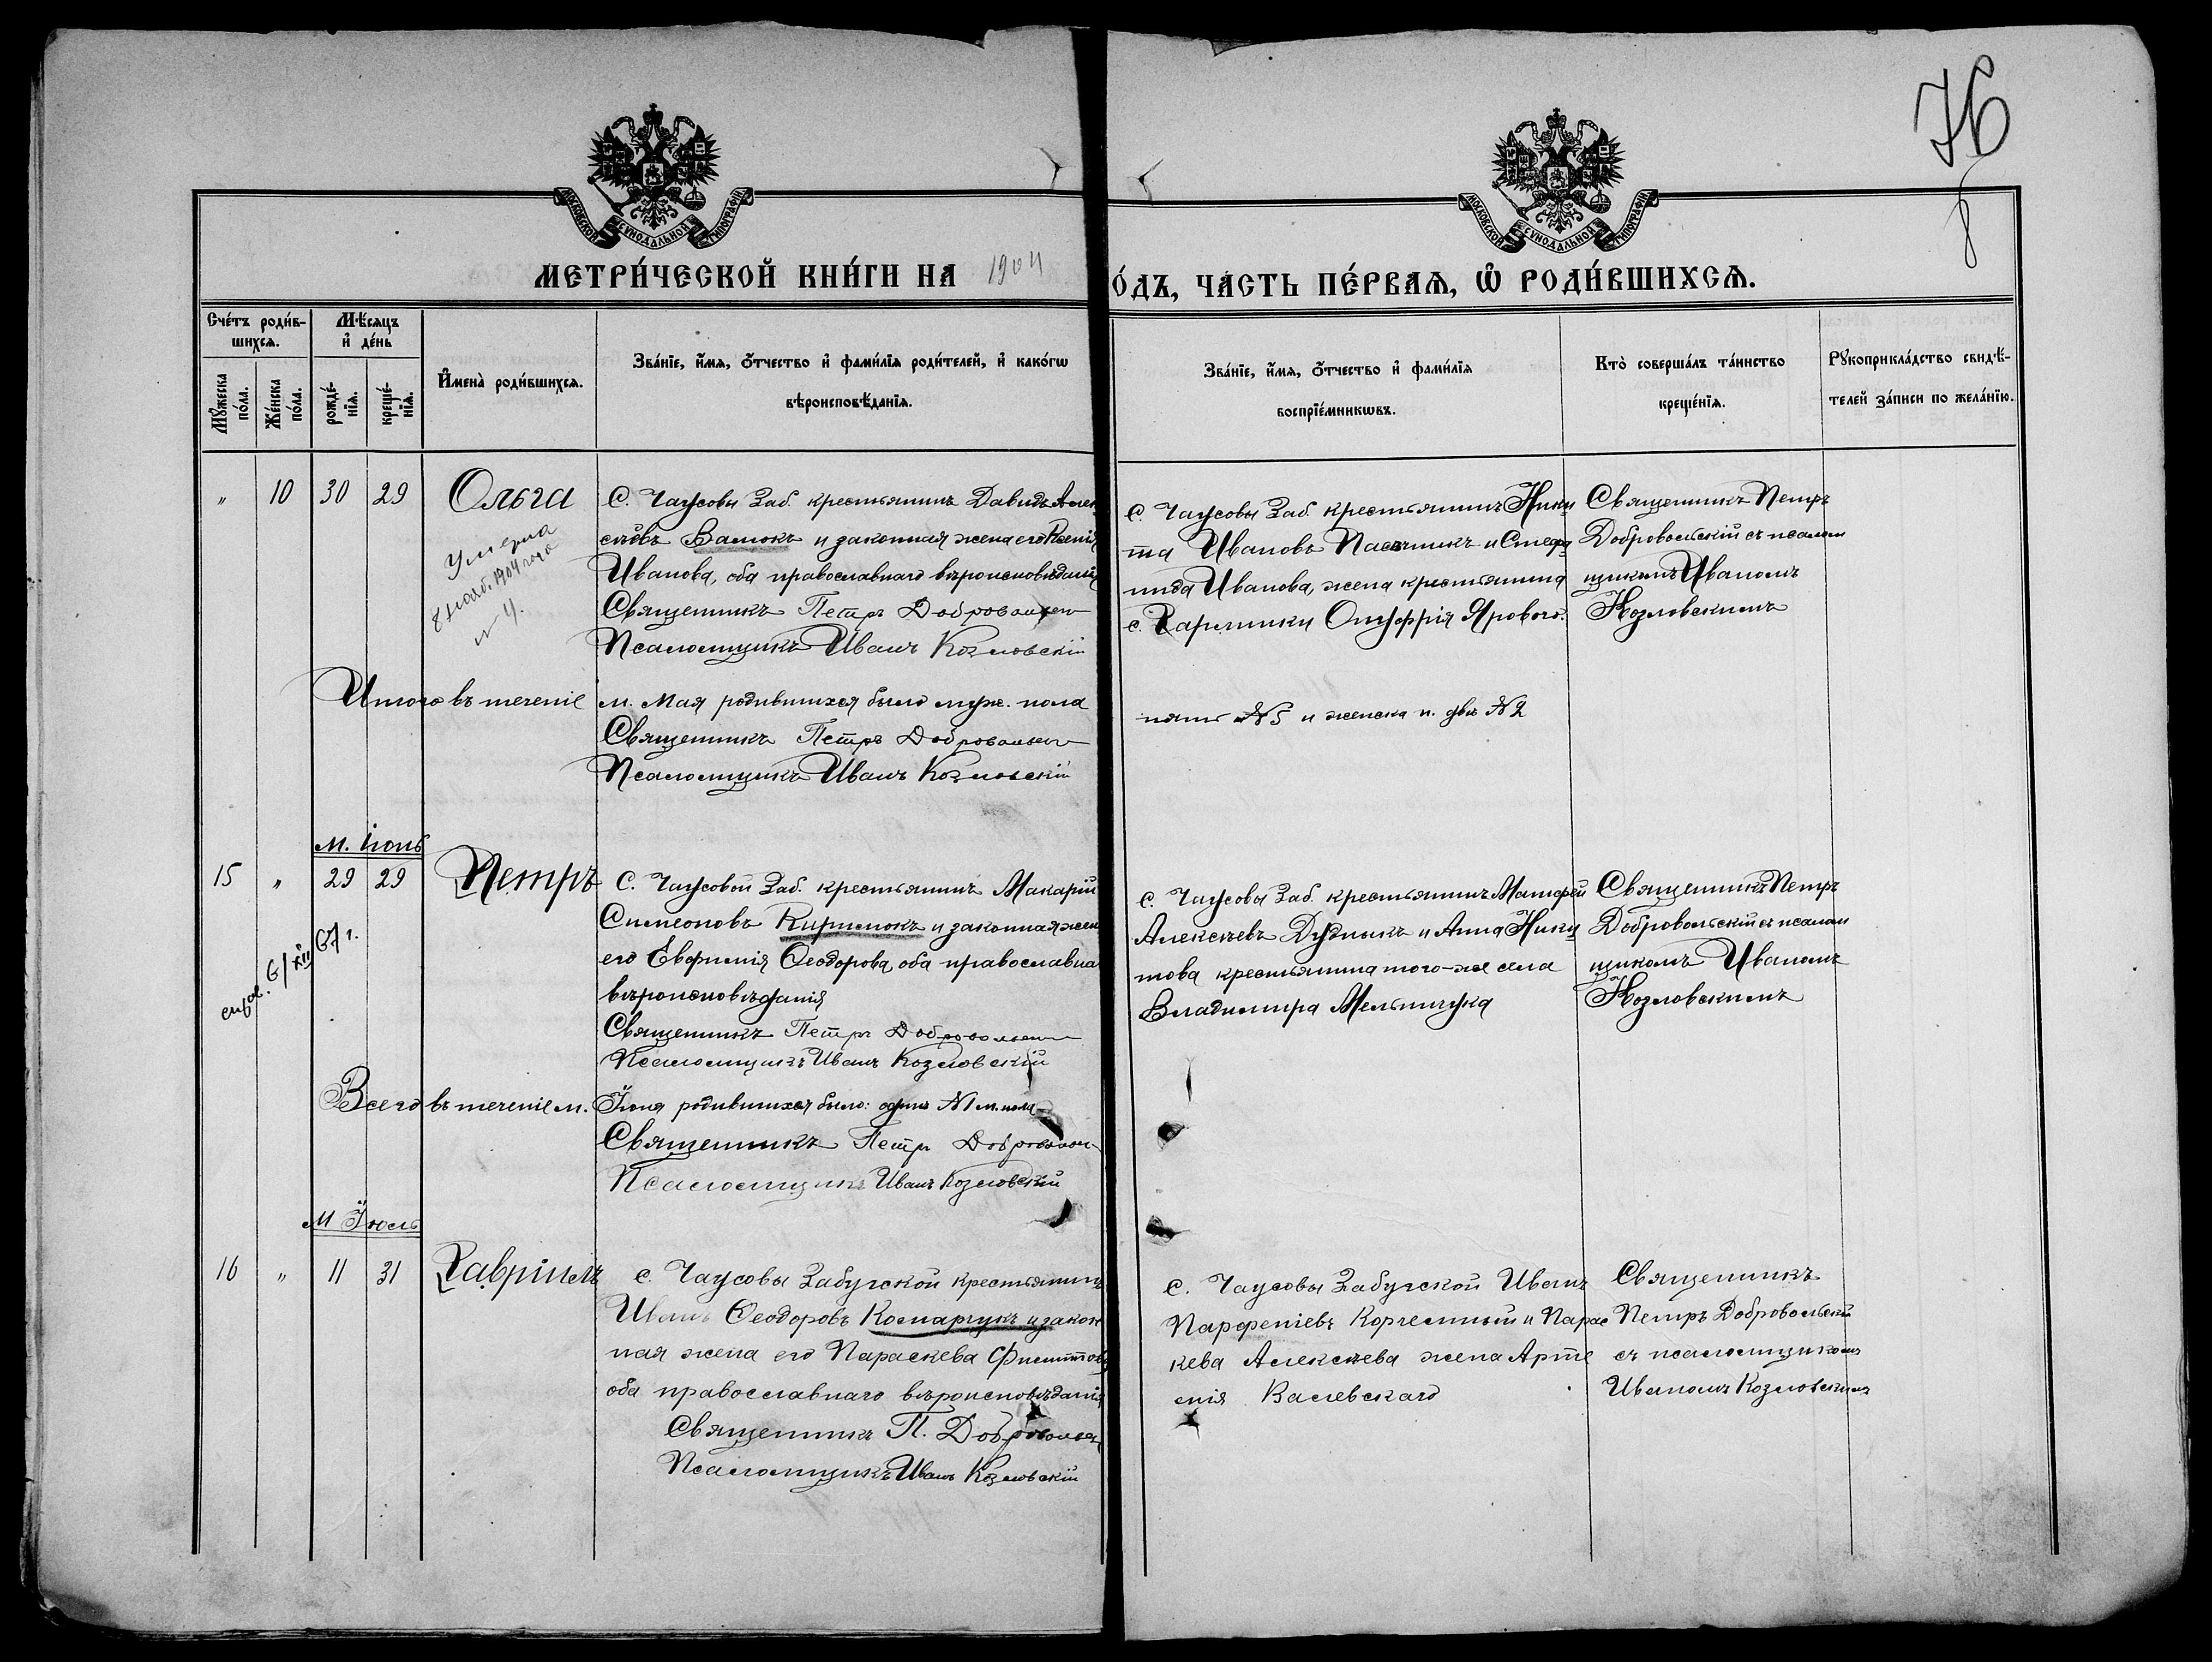 76
8
МОСКОВСКОЙ СѴНОДАЛЬНОЙ ТИПОГРАФІИ
МОСКОВСКОЙ СѴНОДАЛЬНОЙ ТИПОГРАФІИ
МЕТРИ́ЧЕСКОЙ КНИ́ГИ НА 1904
О́ДЪ, ЧА́СТЬ ПЕ́РВАѦ, Ѽ РОДИ́ВШИХСѦ.
Сче́тъ роди́в-
шихсѧ.
Мꙋжеска по́ла.
Же́нска по́ла.
Мѣ́сѧцъ
и҆ де́нь
рожде́-
нїѧ.
креще́-
нїѧ.
И҆мена̀ роди́вшихсѧ.
Зва́нїе, и҆́мѧ, ѻ҆́тчество и҆ фами́лїѧ роди́телей, и҆ како́гѡ
вѣроисповѣ́данїѧ.
Зва́нїе, и҆́мѧ, ѻ҆́тчество и҆ фами́лїѧ
воспрїе́мникѡвъ.
Кто̀ соверша́лъ та́инство
креще́нїѧ.
Рꙋкоприкла́дство свидѣ́-
телей за́писи по жела́нїю.
" 10 30 29 Ольга
Умерла
8 нояб. 1904 года
№ 4.
С. Чаусовы Заб. крестьянинъ Давидъ Алек
сѣевъ Валюкъ и законная жена его Ксенія
Иванова, оба православнаго вѣроисповѣданія
Священникъ Петръ Добровольск
Псаломщикъ Иванъ Козловскій
с. Чаусовы Заб. крестьянинъ Ники
та Ивановъ Пасѣчникъ и Стефа
нида Иванова, жена крестьянина
с. Гарлинки Онуфрія Ярового.
Священникъ Петръ
Добровольскій съ псалом
щикомъ Иваномъ
Козловскимъ
Итого въ теченіе м. Мая родившихся было муж. пола
пять № 5 и женска п. двѣ № 2
Священникъ Петръ Добровольск
Псаломщикъ Иванъ Козловскій
м. Іюнь
15 " 29 29 Петръ
6/XII 67 г.
С. Чаусовой Заб. крестьянинъ Макарій
Симеоновъ Кирилюкъ и законная жен
его Евфимія Ѳеодорова, оба православна
вѣроисповѣданія
Священникъ Петръ Добровольск
Псаломщикъ Иванъ Козловскій
с. Чаусовы Заб. крестьянинъ Матфей
Алексѣевъ Дудныкъ и Анна Ники
това крестьянина того-же села
Владимира Мельничука
Священникъ Петръ
Добровольскій съ псалом
щикомъ Иваномъ
Козловскимъ
Всего въ теченіе м. Іюня родившихся было: одинъ №1 м. пола
Священникъ Петръ Добровольск
Псаломщикъ Иванъ Козловскій
М Іюль
16 " 11 31 Гавріилъ
с. Чаусовы Забугской крестьянинъ
Иванъ Ѳеодоровъ Комарчукъ и закон
ная жена его Параскева Филиппова
оба православнаго вѣроисповѣданія
Священникъ П. Добровольск
Псаломщикъ Иванъ Козловскій
с. Чаусовы Забугской Иванъ
Парфеніевъ Корчемный и Парас
кева Алексѣева жена Арте
мія Валевскаго
Священникъ
Петръ Добровольскій
съ псаломщикомъ
Иваномъ Козловскимъ